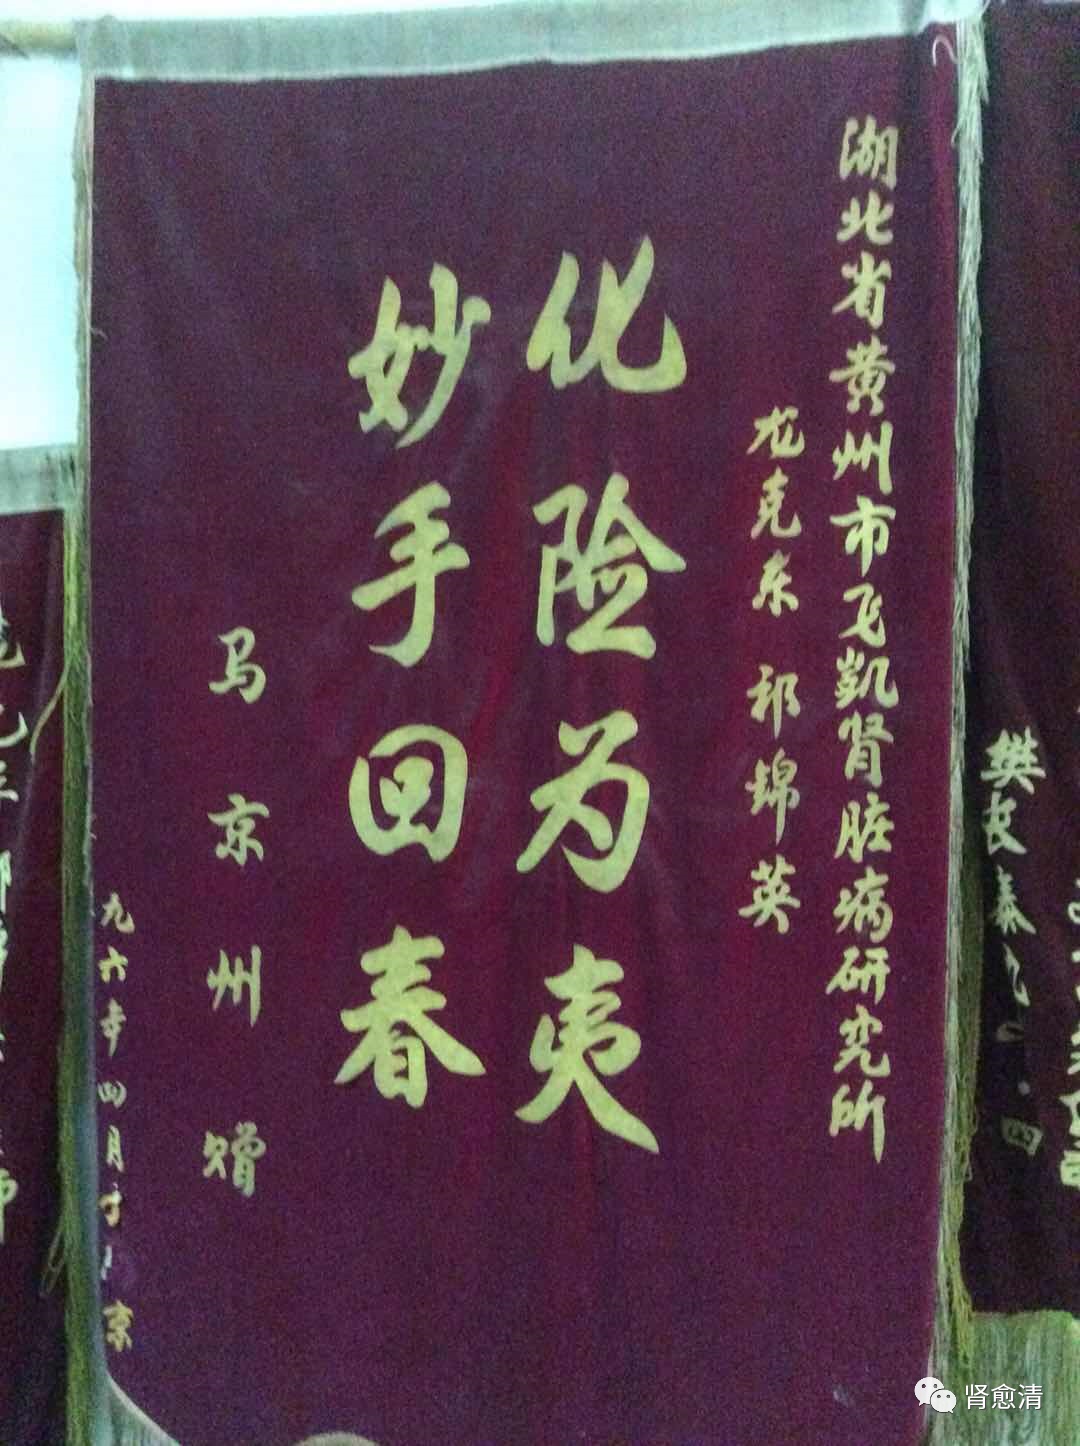 湖北省黄州市飞凯肾脏病研究所
龙克东 祁锦英
化险为夷
妙手回春
马京州赠
九六年四月于
京
樊長泰九二·四
肾愈清